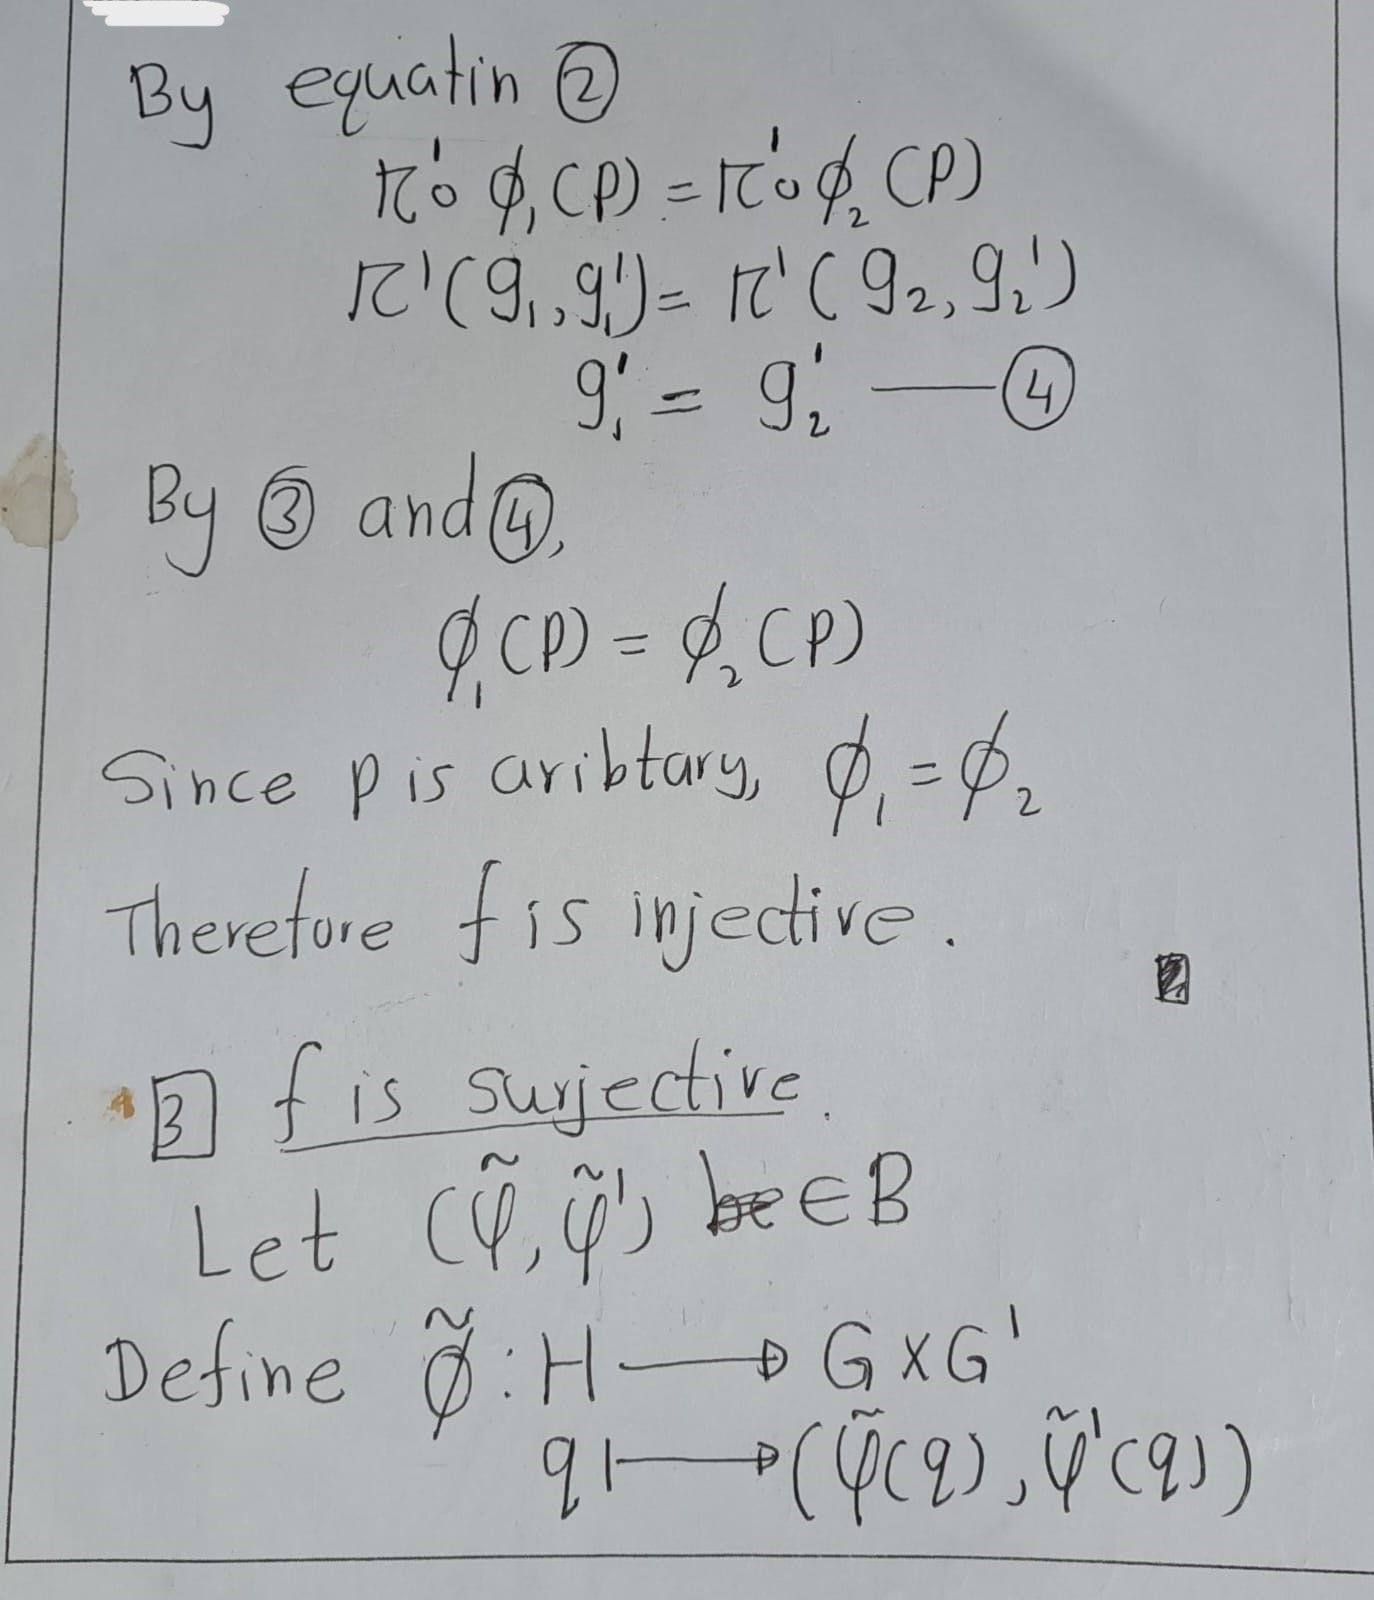 By equatin ②
π'∘ϕ₁(p) = π'∘ϕ₂(p)
π'(g₁,g₁') = π'(g₂,g₂')
g₁' = g₂' — ④
By ③ and ④,
ϕ₁(p) = ϕ₂(p)
Since p is aribtary, ϕ₁ = ϕ₂
Therefore f is injective.
3 f is surjective.
Let (φ̃, φ̃') ∈ B
Define ϕ̃ : H → G × G'
q ↦ (φ̃(q), φ̃'(q))